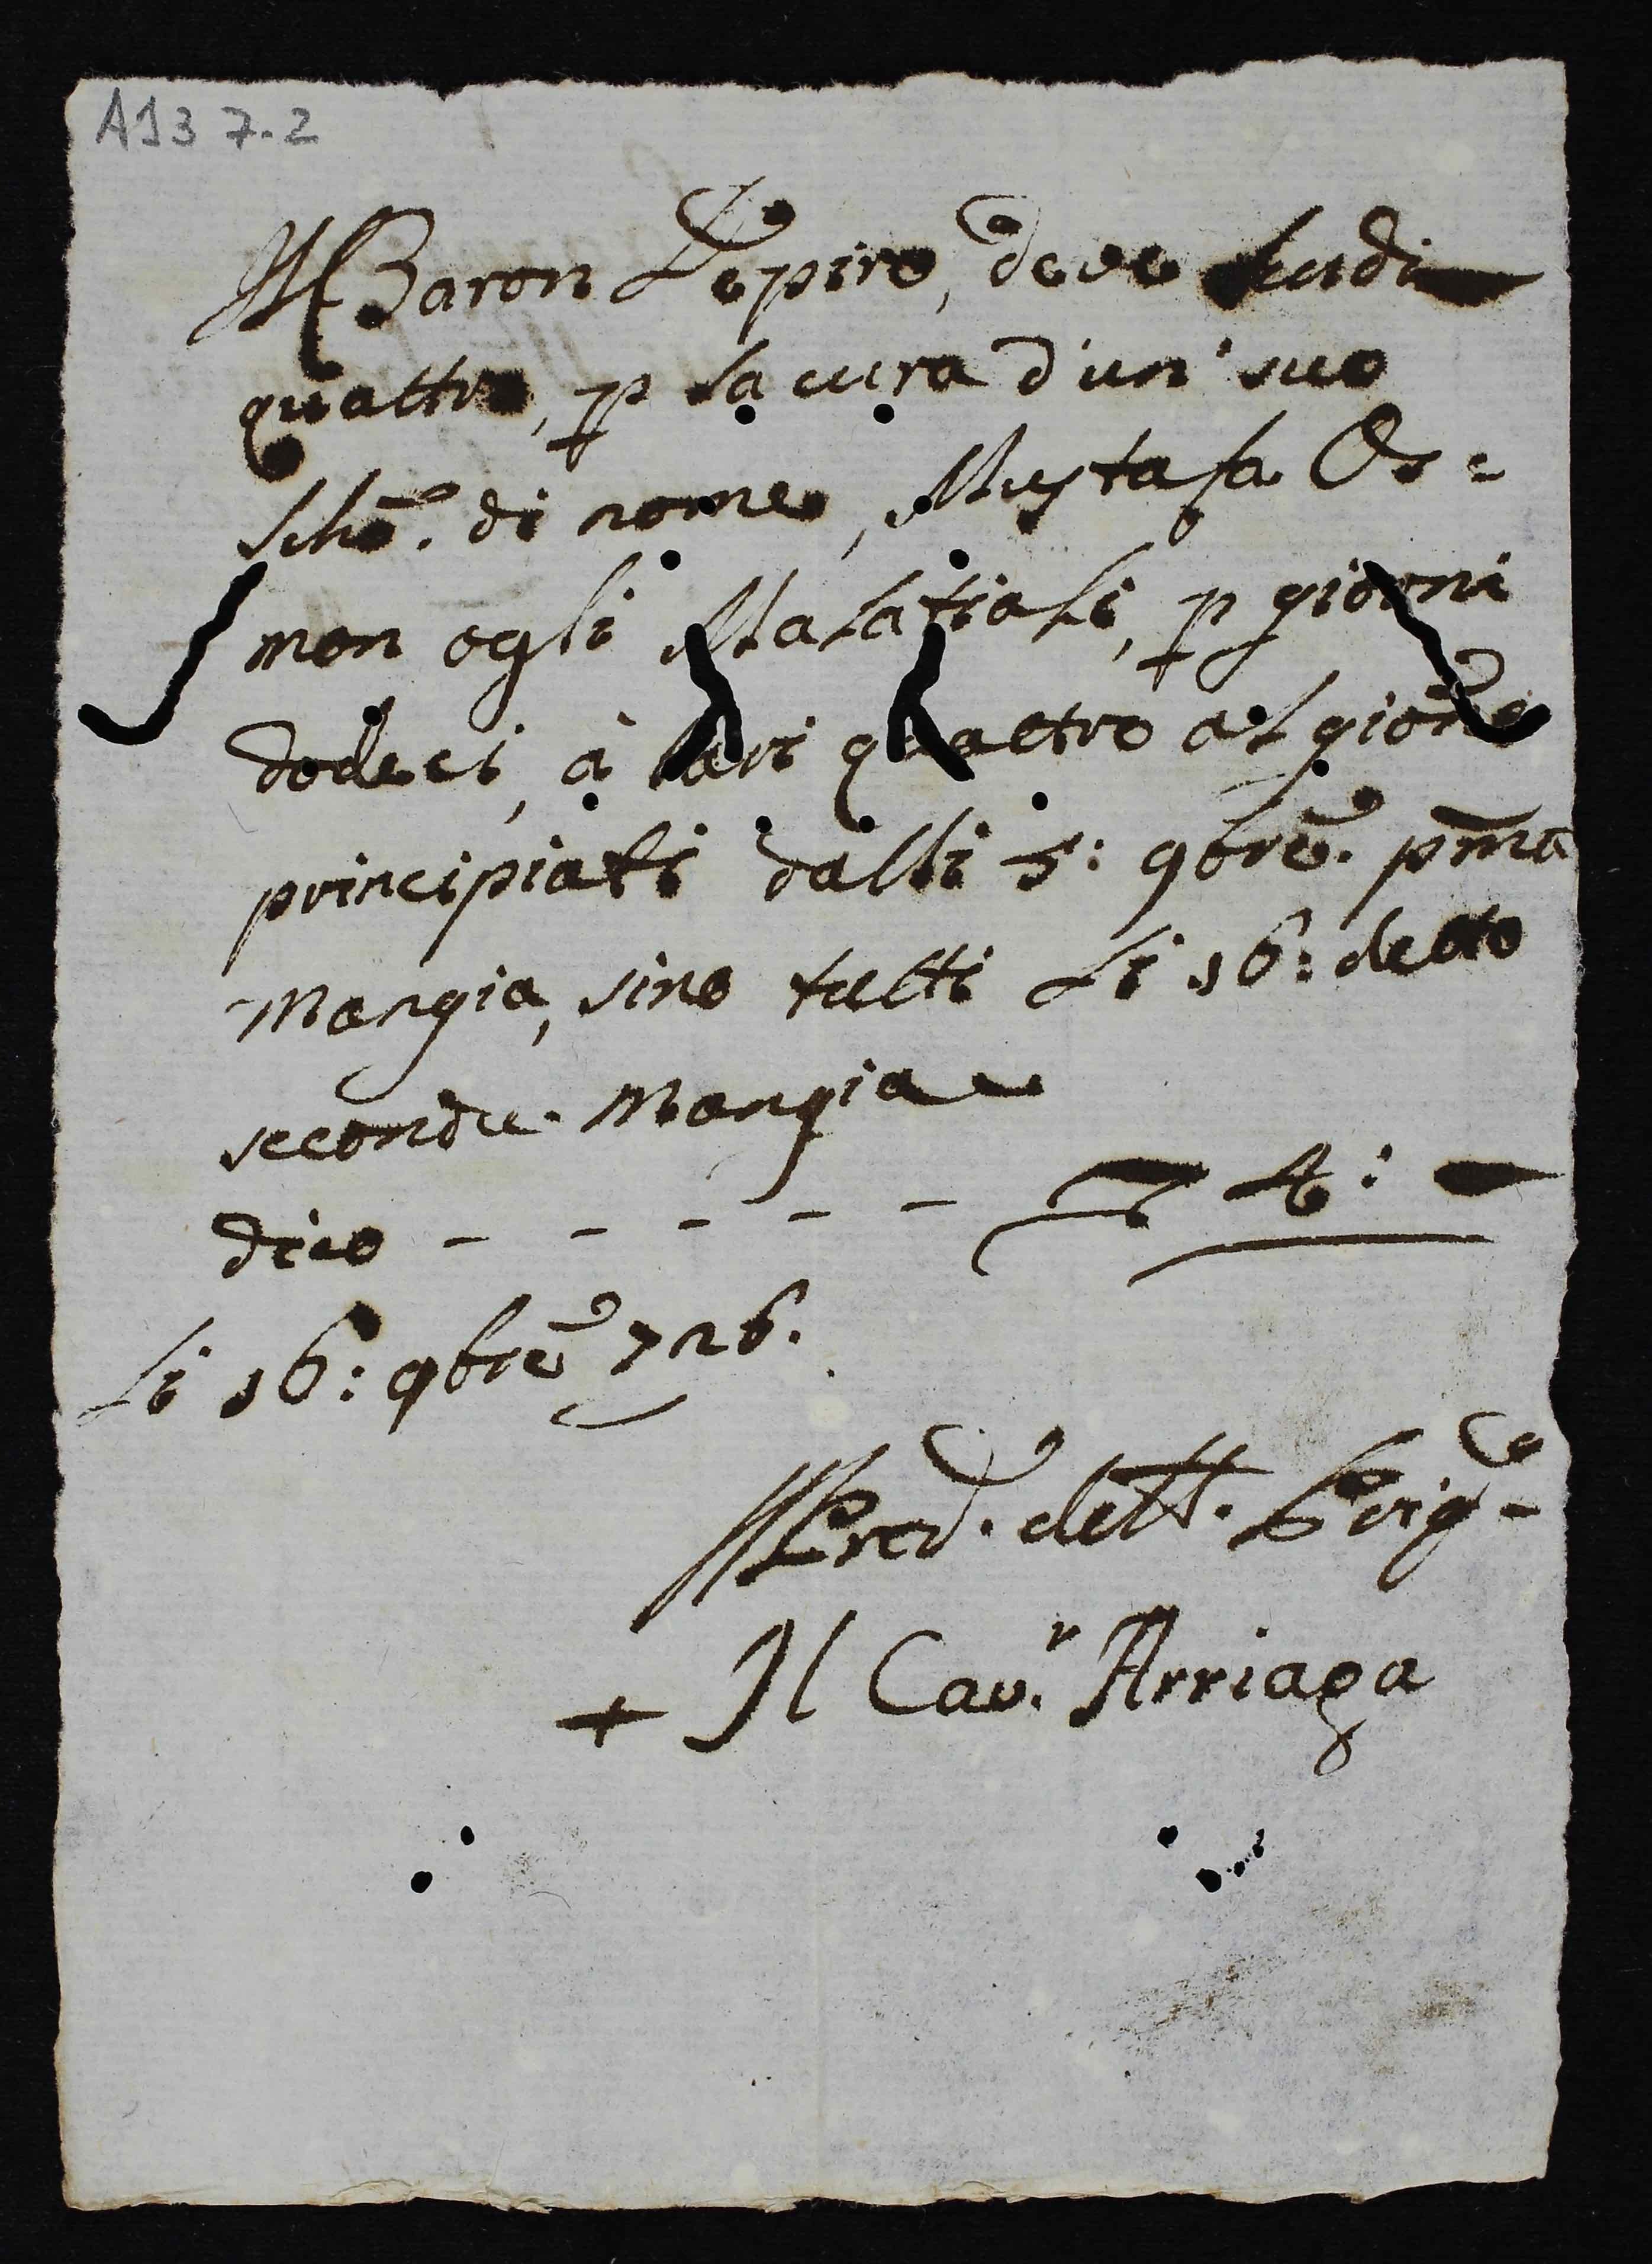 A13 7.2
Il Baron Depiro, deve scudi
quattro, p la cura d'un' suo
schō. di nome, Mustafa Os=
man ogli Malatiali, p giorni
dodeci, à tari quattro al giorno
principiati dalli 5: 9bre. pma
Mangia, sino tutti li 16: detto
secondu. Mangia
dico - - - - - 4:
li 16: 9bre 726.
Pred. dett.
+ Il Cav.r Arriaga